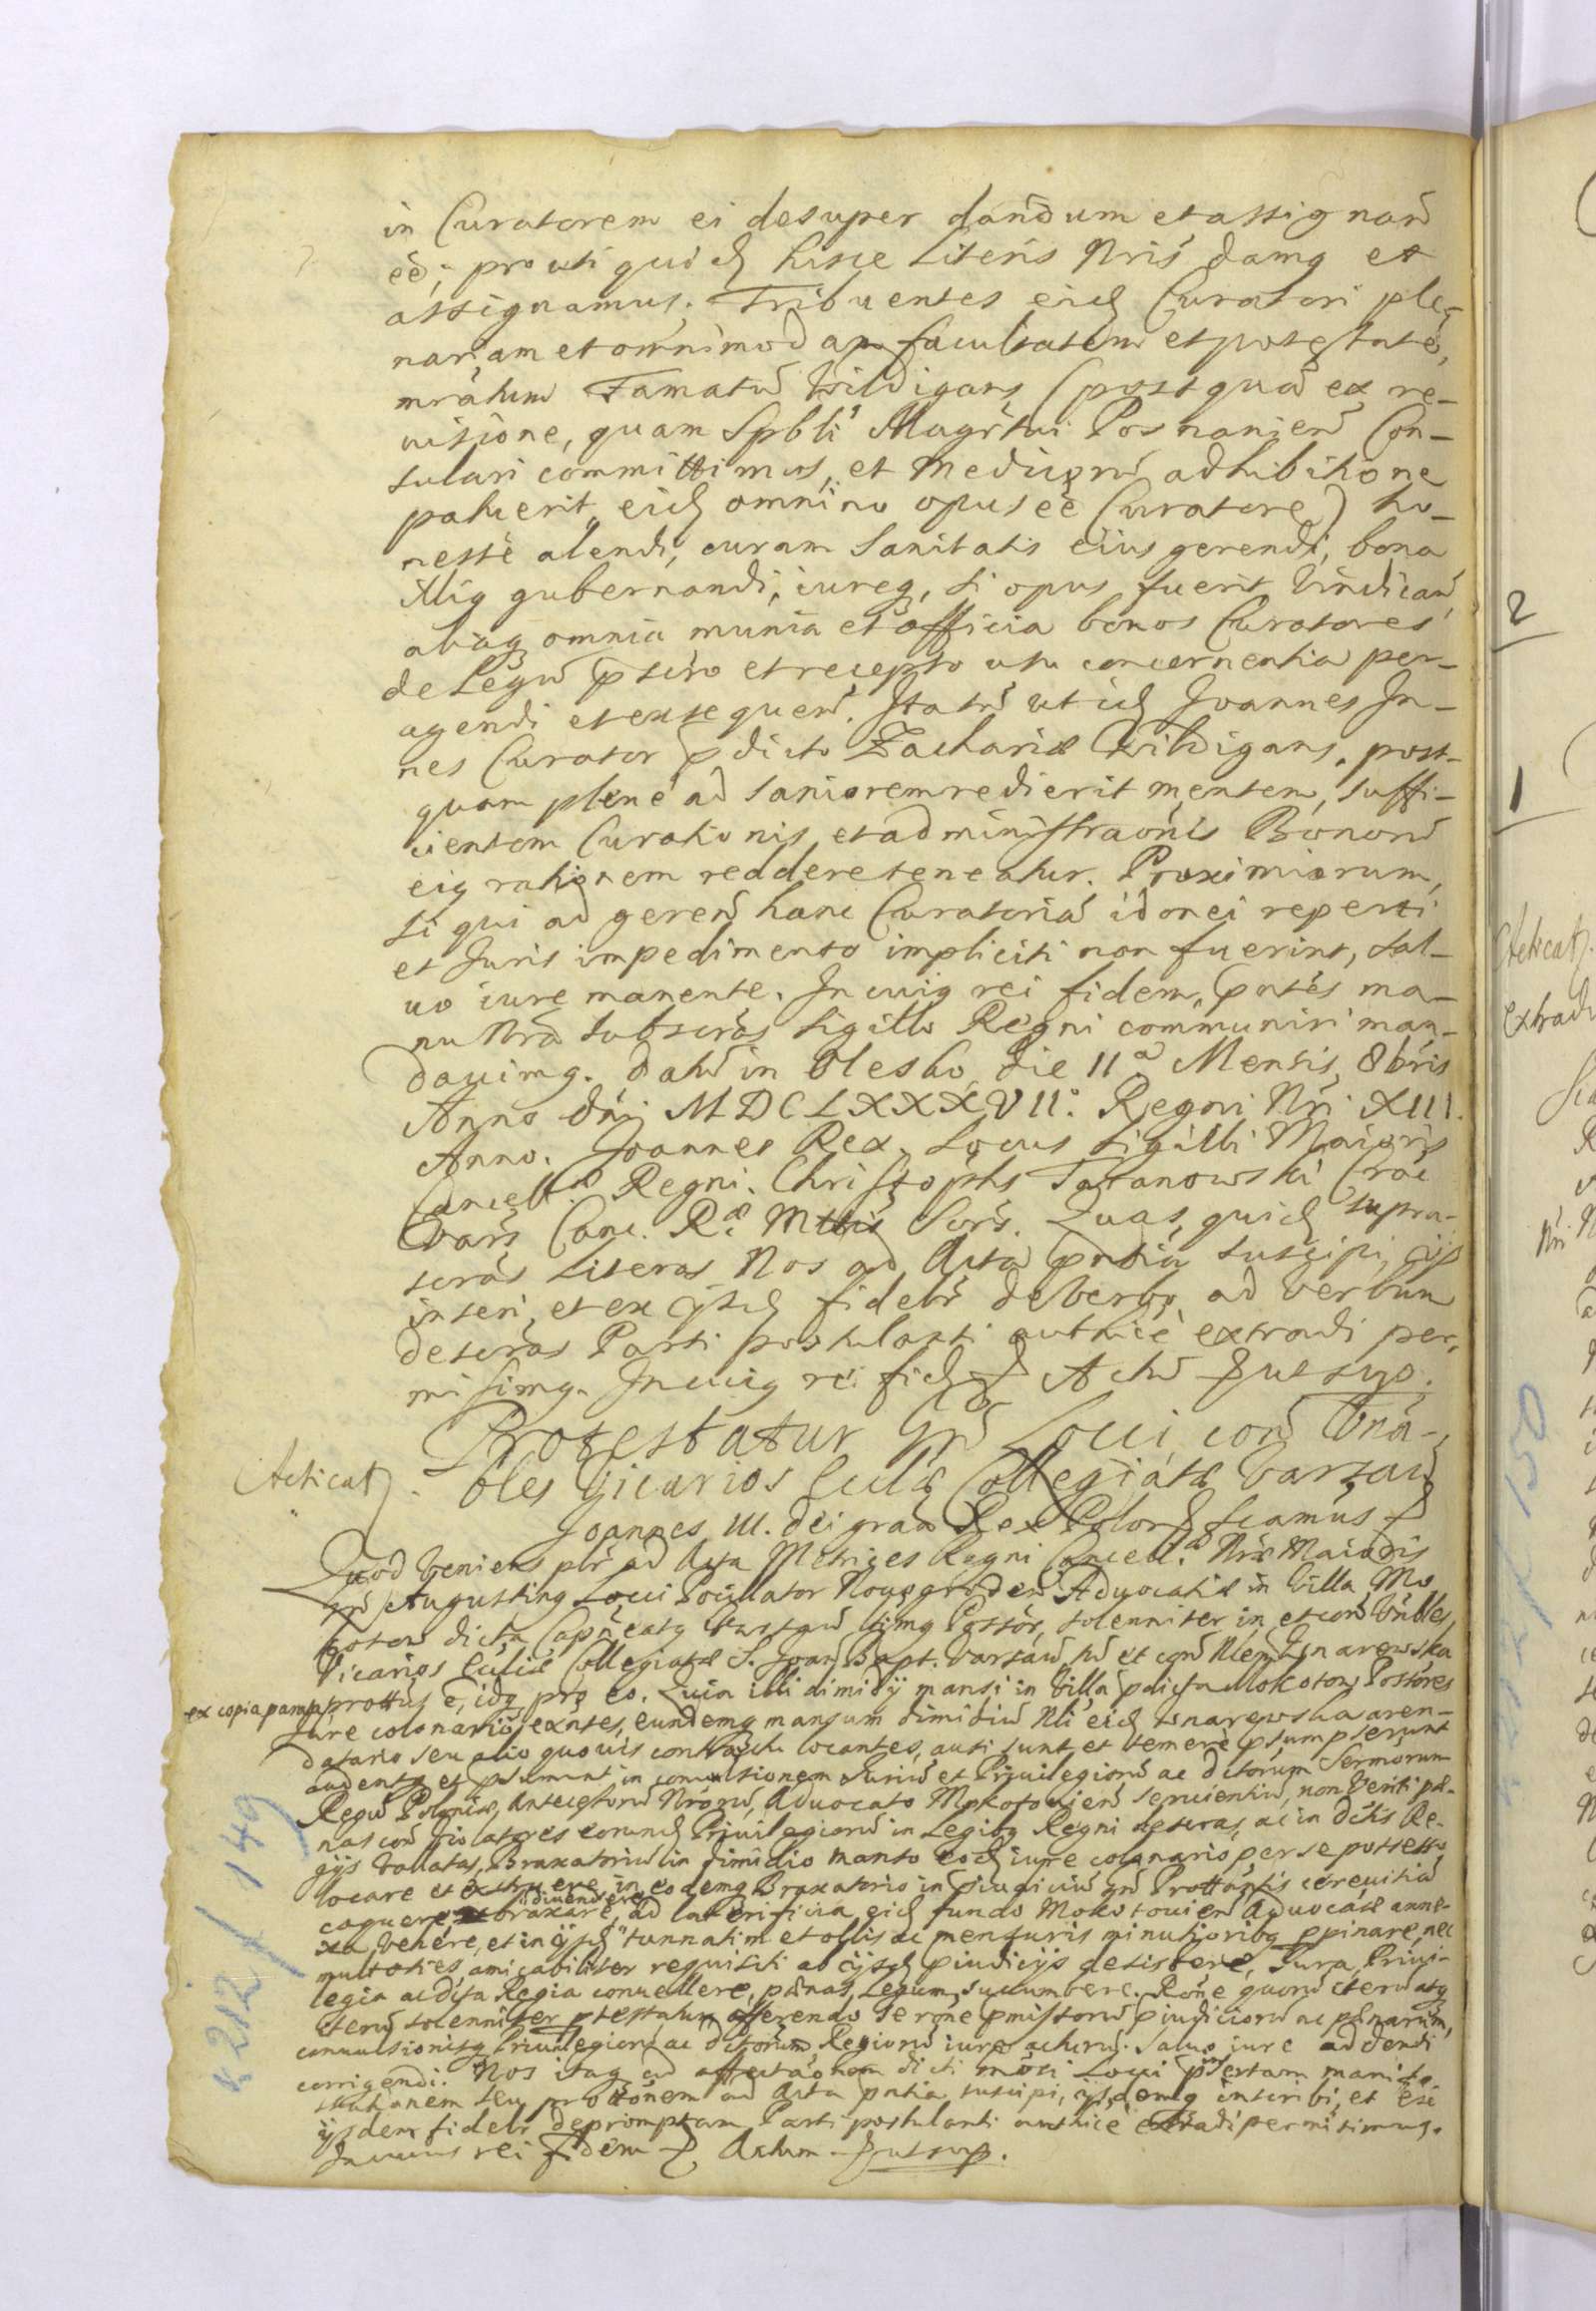 in Curatorem ei desuper dandum et assignand
eē; prouti quidē hisce Literis Nris damq et
assignamus. Tribuentes eidē Curatori ple-
nariam et omnimodam facultatem et potestatē,
mratum Famatū Wildigans (postquā ex re-
uisione, quam Spbli Magrtui Posnanien Con-
sulari committimus, et Medicorū adhibitione
patuerit, eidē omnino opus eē Curatore) ho-
nestè alendi, curam Sanitatis eius gerendi, bona
illiq gubernandi, iureq, si opus fuerit, vindicand,
aliaq omnia munia et officia bonos Curatores
de Legū pscrō et recepto usu concernentia per-
agendi et exequend. Ita tn ut idē Joannes In-
nes Curator pdicto Zachariæ Wildigans, post-
quam plenè ad saniorem redierit mentem, suffi-
cientem Curationis et administraōnis Bonorū
eiq rationem reddere teneatur. Proximiorum,
si qui ad gerend hanc Curatoriā idonei reperti
et Juris impedimento impliciti non fuerint, sal-
uo iure manente. In cuiq rei fidem, pntes ma-
nu Nrā subscrās sigillo Regni communiri man-
dauimq. Datū in Olesko die 11ª Mensis 8bris
Anno Dni MDCLXXXVII. Regni Nri XIII.
Anno. Joannes Rex. Locus sigilli Maioris
Cancellæ Regni. Christophs Tatanowski Crac
Vars Canc. Ræ Mttis Scrs. Quas quidē supra-
scrās Literas Nos ad Acta pntia suscipi, ijs
inseri, et ex ijsdē fidelr de verbo ad verbum
descrās Parti postulanti authcè extradi per-
misimq. In cuiq rei fidē Actū ut sup.
Protestatur Gnr Locci con Vnā-
Acticat. bles Vicarios Eccliæ Collegiatæ Varsau
Joannes III. Dei gratia Rex Polon scamus
Quod veniens plr ad Acta Metrices Regni Cancellæ Nræ Maioris
Gnr Augustinq Locci Pocillator Nouogroden Aduocatiæ in Villa Mo
kotow dicta Capneatq Varsau simq Possor, solenniter in et con Vnbles
Vicarios Eccliæ Collegiatæ S. Joan Bapt. Varsau nec et con Nlem Gnarewska
ex copia pamp prottus ē, idq pro eo. Quia illi dimidij mansi in Villa pdicta Mokotow Possores
iure colonario exntes, eundemq mansum dimidiū Nli eidē Gnarewska aren-
datario seu alio quouis contractu locantes, ausi sunt et temerè psumpserunt
audentq et psumunt in conuulsionem Juriū et Priuilegiorū ac dctorum Sermorum
Regū Poloniæ, Antecssorū Nrorū, Aduocato Mokotouien seruientiū, non veriti pæ-
nas con violatores eorundē Priuilegiorū in Legibq Regni descras, ac in dctis Re-
gijs vallatas, Braxatoriū in dimidio manso eodē iure colonario per se possesso
locare et extruere, in eodemq Braxatorio in piudiciū Gnr Prottantis cereuisiā
coquere, braxare, diuendere, ad laterificia eidē fundo Mokotouien Aduocatiæ anne-
xa vehere, et in ijsdē tunnatim et ollis ac mensuris minutioribq ppinare, nec
multoties amicabiliter requisiti ab ijsdē piudicijs desistere, Jura Priui-
legia ac dcta Regia conuellere, pænas Legum, succumbere. Rone quorū iterū atq
iterū solenniter ptestatur offerendo se rone pmissorū piudiciorū ac pænarum,
conuulsionisq Priuilegiorū ac dctorum Regiorū iure acturū. Saluo iure addendi
corrigendi. Nos itaq ad affectaōnem dicti Locci insertam manife
stationem seu prottōnem ad Acta pntia suscipi, ijsdemq inscribi, et ex
ijsdem fidelr depromptam Parti postulanti authcè extradi permisimus.
In cuius rei fidem Actum ut sup.
r. 212 f 149
2
1
Acticat
extradi
150